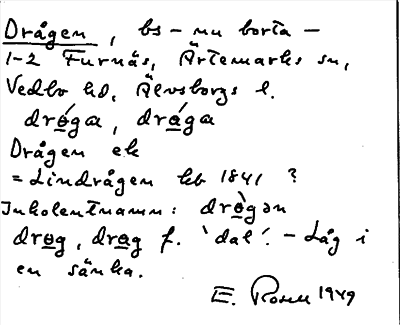 Drågen, bs – nu borta –
1-2 Furnäs, Ärtemarks sn,
Vedbo hd, Älvsborgs l.
dróga, drága
Drågen ek
= Lindrågen kb 1841 ?
Inkolentnamn: drògən
drog, drag f. 'dal'. – Låg i
en sänka.
E. Rosell 1949